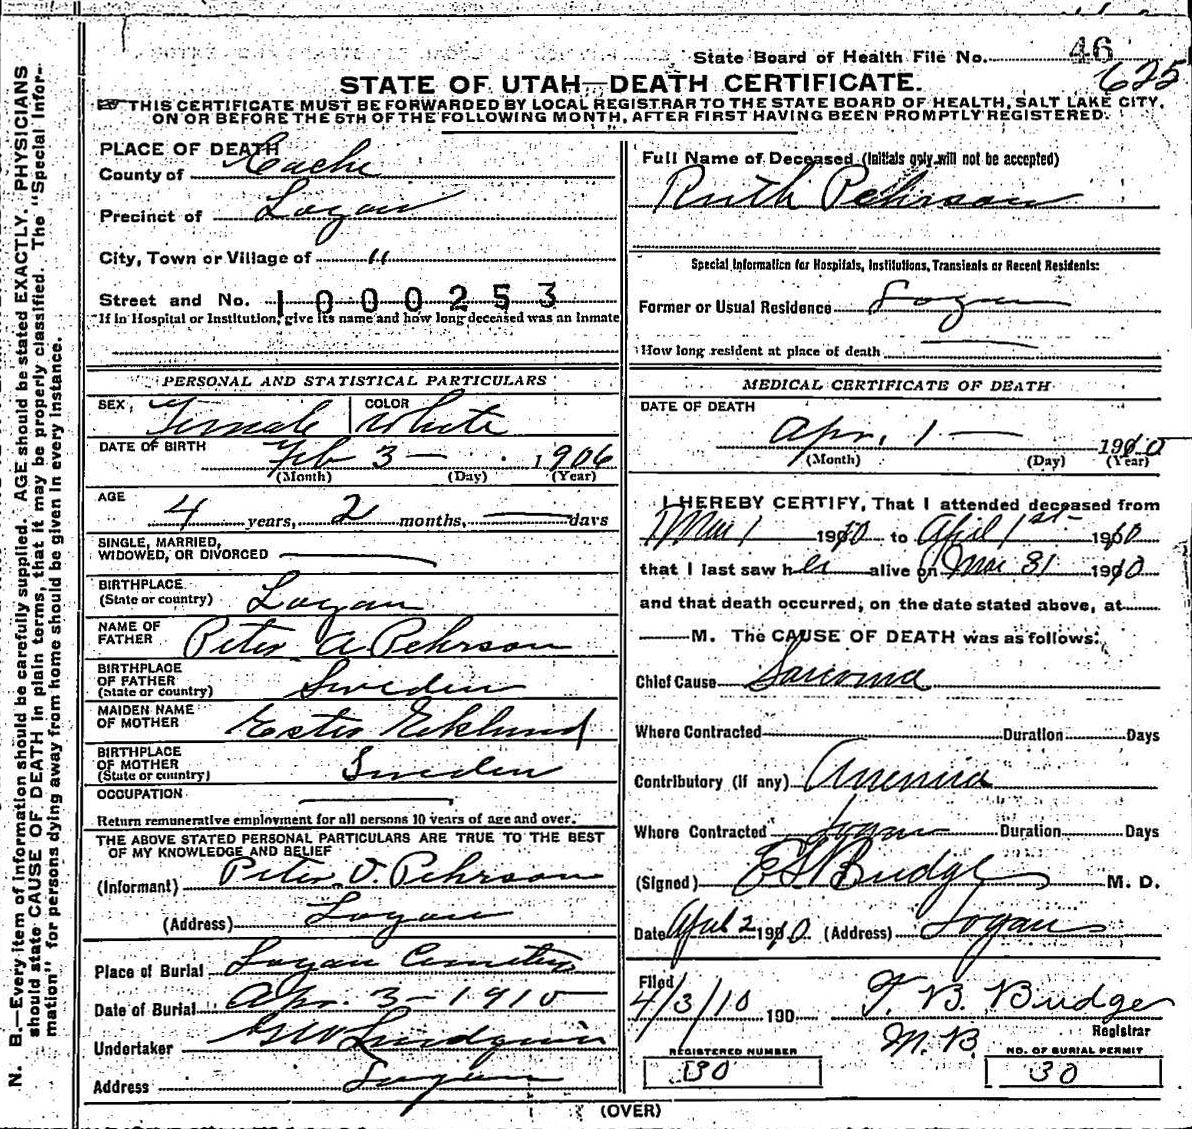 State Board of Health File No. 46
625
STATE OF UTAH—DEATH CERTIFICATE.
THIS CERTIFICATE MUST BE FORWARDED BY LOCAL REGISTRAR TO THE STATE BOARD OF HEALTH, SALT LAKE CITY,
ON OR BEFORE THE 5TH OF THE FOLLOWING MONTH, AFTER FIRST HAVING BEEN PROMPTLY REGISTERED.
N. B.—Every item of information should be carefully supplied. AGE should be stated EXACTLY. PHYSICIANS
should state CAUSE OF DEATH in plain terms, that it may be properly classified. The "Special Infor-
mation" for persons dying away from home should be given in every instance.
PLACE OF DEATH
County of Cache
Precinct of Logan
City, Town or Village of "
Street and No. 1000253
If in Hospital or Institution, give its name and how long deceased was an inmate
PERSONAL AND STATISTICAL PARTICULARS
SEX, Female COLOR White
DATE OF BIRTH Feb 3 — 1906
(Month) (Day) (Year)
AGE
4 years, 2 months, — days
SINGLE, MARRIED,
WIDOWED, OR DIVORCED —
BIRTHPLACE
(State or country) Logan
NAME OF
FATHER Peter A Pehrson
BIRTHPLACE
OF FATHER
(State or country) Sweden
MAIDEN NAME
OF MOTHER Ester Eklund
BIRTHPLACE
OF MOTHER
(State or country) Sweden
OCCUPATION —
Return remunerative employment for all persons 10 years of age and over.
THE ABOVE STATED PERSONAL PARTICULARS ARE TRUE TO THE BEST
OF MY KNOWLEDGE AND BELIEF
(Informant) Peter O. Pehrson
(Address) Logan
Place of Burial Logan Cemetery
Date of Burial Apr. 3 - 1910
Undertaker
Address Logan
Full Name of Deceased (Initials only will not be accepted)
Ruth Pehrson
Special Information for Hospitals, Institutions, Transients or Recent Residents:
Former or Usual Residence Logan
How long resident at place of death —
MEDICAL CERTIFICATE OF DEATH
DATE OF DEATH
Apr. 1 — 1910
(Month) (Day) (Year)
I HEREBY CERTIFY, That I attended deceased from
Mar 1 1910 to April 1st 1910
that I last saw her alive on Mar 31 1910
and that death occurred, on the date stated above, at
— M. The CAUSE OF DEATH was as follows:
Chief Cause Sarcoma
Where Contracted Duration Days
Contributory (if any) Anemia
Where Contracted Logan Duration Days
(Signed) Budge M. D.
Date April 2 1910. (Address) Logan
Filed
4/3/10 190 T. B. Budge
M. B. Registrar
REGISTERED NUMBER
30
NO. OF BURIAL PERMIT
30
(OVER)